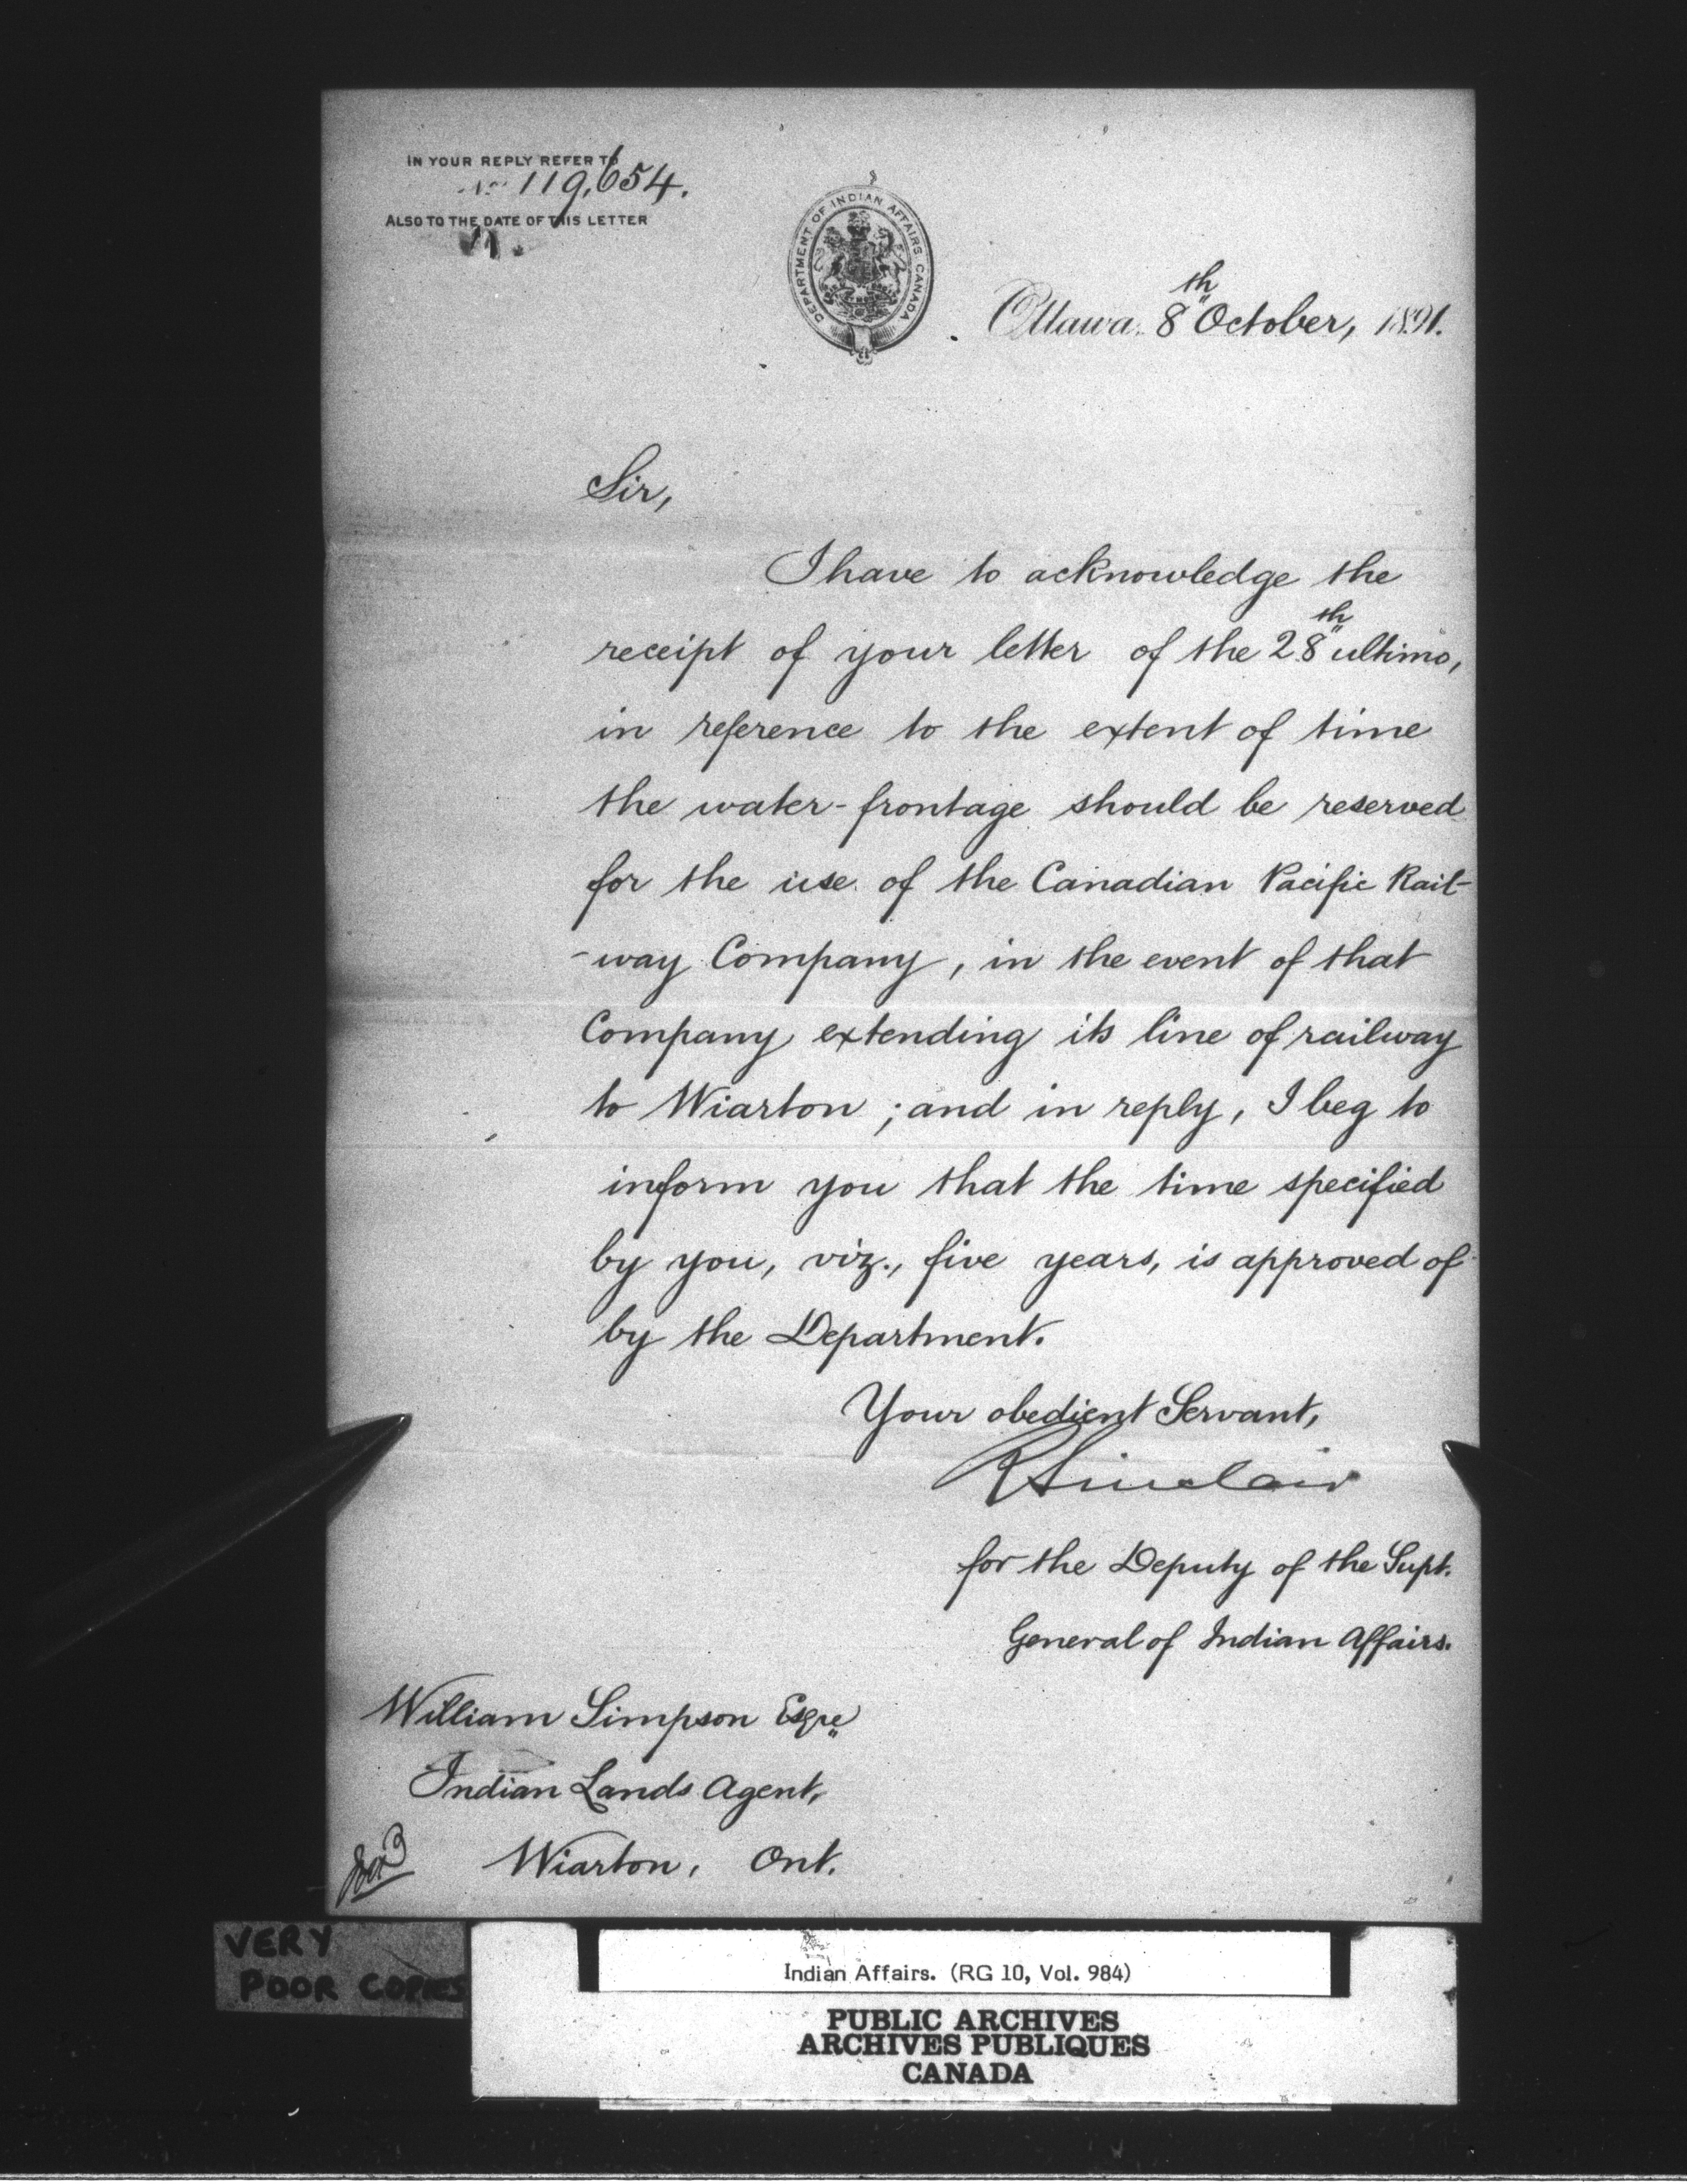 IN YOUR REPLY REFER TO
No 119,654.
ALSO TO THE DATE OF THIS LETTER
DEPARTMENT OF INDIAN AFFAIRS CANADA
Ottawa, 8th October, 1891.
Sir,
I have to acknowledge the
receipt of your letter of the 28th ultimo,
in reference to the extent of time
the water-frontage should be reserved
for the use of the Canadian Pacific Rail-
-way Company, in the event of that
Company extending its line of railway
to Wiarton; and in reply, I beg to
inform you that the time specified
by you, viz., five years, is approved of
by the Department.
Your obedient Servant,
R Sinclair
for the Deputy of the Supt.
General of Indian Affairs.
William Simpson Esqre
Indian Lands Agent,
Wiarton, Ont.
VERY
POOR COPIES
Indian Affairs. (RG 10, Vol. 984)
PUBLIC ARCHIVES
ARCHIVES PUBLIQUES
CANADA